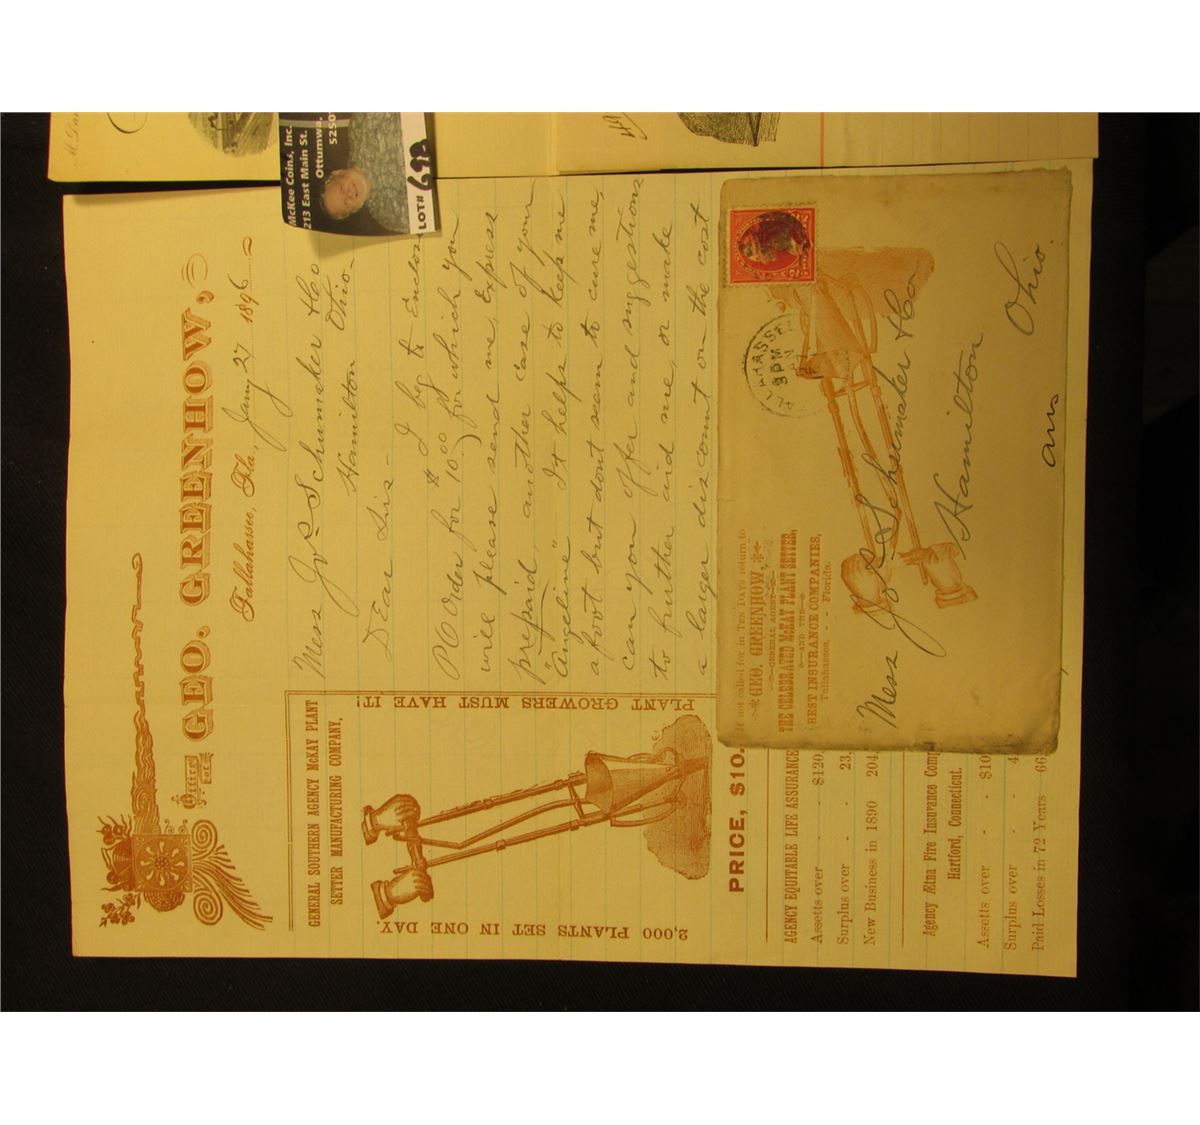 McKee Coins, Inc.
213 East Main St.
Ottumwa,
5250
LOT# 693
Office of
GEO. GREENHOW,
Tallahassee, Fla., Jany 27 1896
Mess Jos Schumaker & Co
Hamilton
Ohio -
Dear Sirs -
I beg to Enclose
P O Order for $10.00 (for which you
will please send me, Express
prepaid, another case of your
"Angeline" It helps to keep me
afoot but dont seem to cure me,
can you offer and suggestions
to further aid me, or make
a larger discount on the cost
GENERAL SOUTHERN AGENCY McKAY PLANT
SETTER MANUFACTURING COMPANY,
2,000 PLANTS SET IN ONE DAY.
PLANT GROWERS MUST HAVE IT!
PRICE, $10.
AGENCY EQUITABLE LIFE ASSURANCE
Assetts over - - $120,
Surplus over - - 23.
New Business in 1890 204.
Agency Ætna Fire Insurance Comp
Hartford, Connecticut.
Assetts over - - $10
Surplus over - - 4
Paid Losses in 72 Years 66
If not called for in TEN DAYS return to
GEO. GREENHOW,
GENERAL AGENT
THE CELEBRATED McKAY PLANT SETTER,
AND THE
BEST INSURANCE COMPANIES,
Tallahassee, - - - Florida.
TALLAHASSEE
8 PM
Mess Jos Schumaker & Co
Hamilton
Ohio.
ans